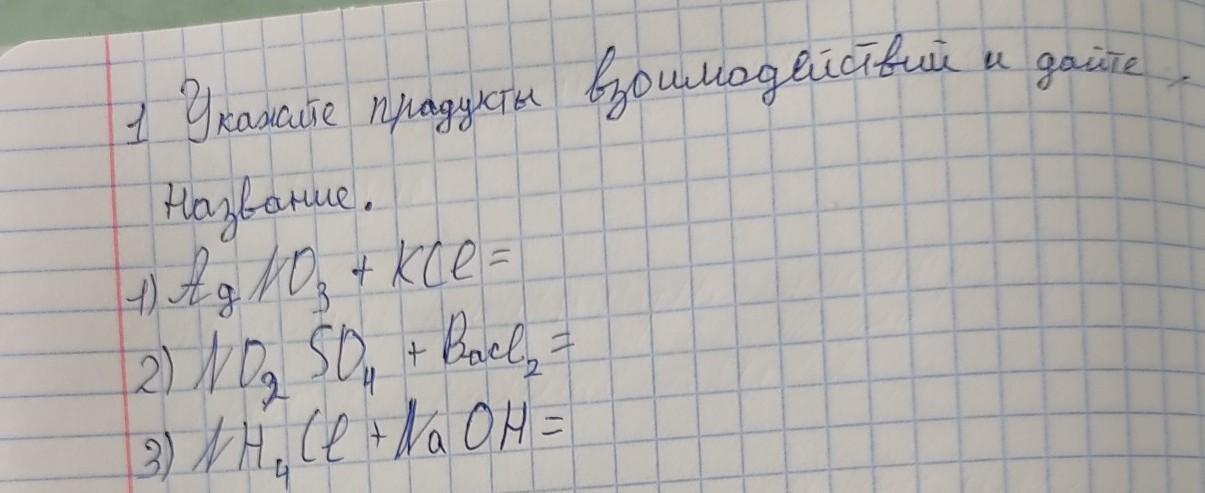 1 Укажите продукты взоимодействий и дайте
Название.
1) AgNO₃ + KCl =
2) NO₂ SO₄ + BaCl₂ =
3) NH₄Cl + NaOH =